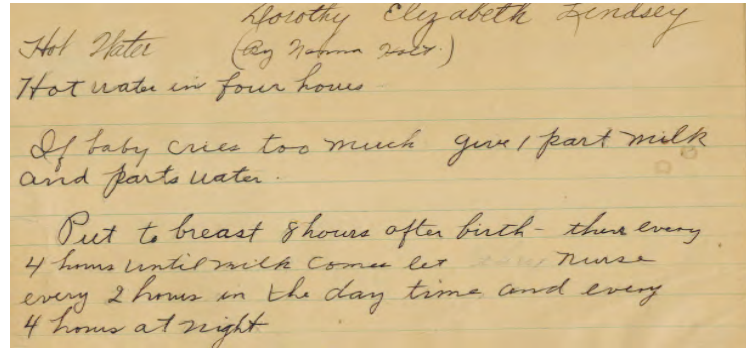 Dorothy Elizabeth Lindsey
Hot Water (By Norma
Hot water in four hours
If baby cries too much give 1 part milk
and parts water.
Put to breast 8 hours after birth - then every
4 hours until milk comes let nurse
every 2 hours in the day time and every
4 hours at night